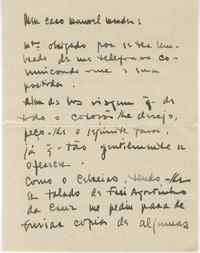 Meu caro Manoel Mendes:
Mto obrigado por se ter lem-
brado de me telefonar co-
municando-me a sua
partida.
Além da boa viagem q. de
todo o coração lhe desejo,
peço-lhe o seguinte favor,
já q. tão gentilmente se
ofereceu.
Como o Cibeiras, tendo-lhe
eu falado de Frei Agostinho
da Cruz me pediu para lhe
enviar copias de algumas